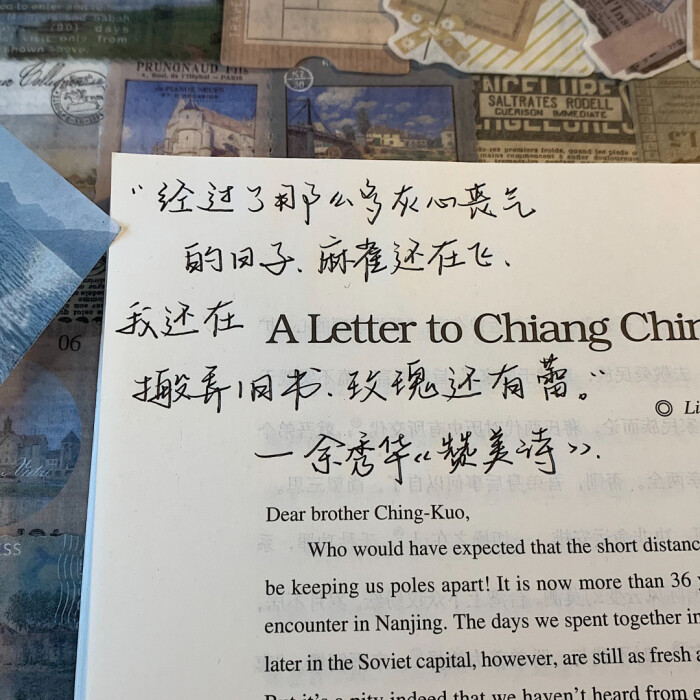 PRUNGNAUD Fils
SALTRATES RODELL
GUERISON IMMEDIATE
“经过了那么多灰心丧气
的日子、麻雀还在飞、
我还在
06
A Letter to Chiang Chin
搬弄旧书、玫瑰还有蕾。”
◎ Li
一余秀华《赞美诗》.
Dear brother Ching-Kuo,
Who would have expected that the short distanc
be keeping us poles apart! It is now more than 36 y
encounter in Nanjing. The days we spent together in
later in the Soviet capital, however, are still as fresh a
But it's a pity indeed that we haven't heard from e